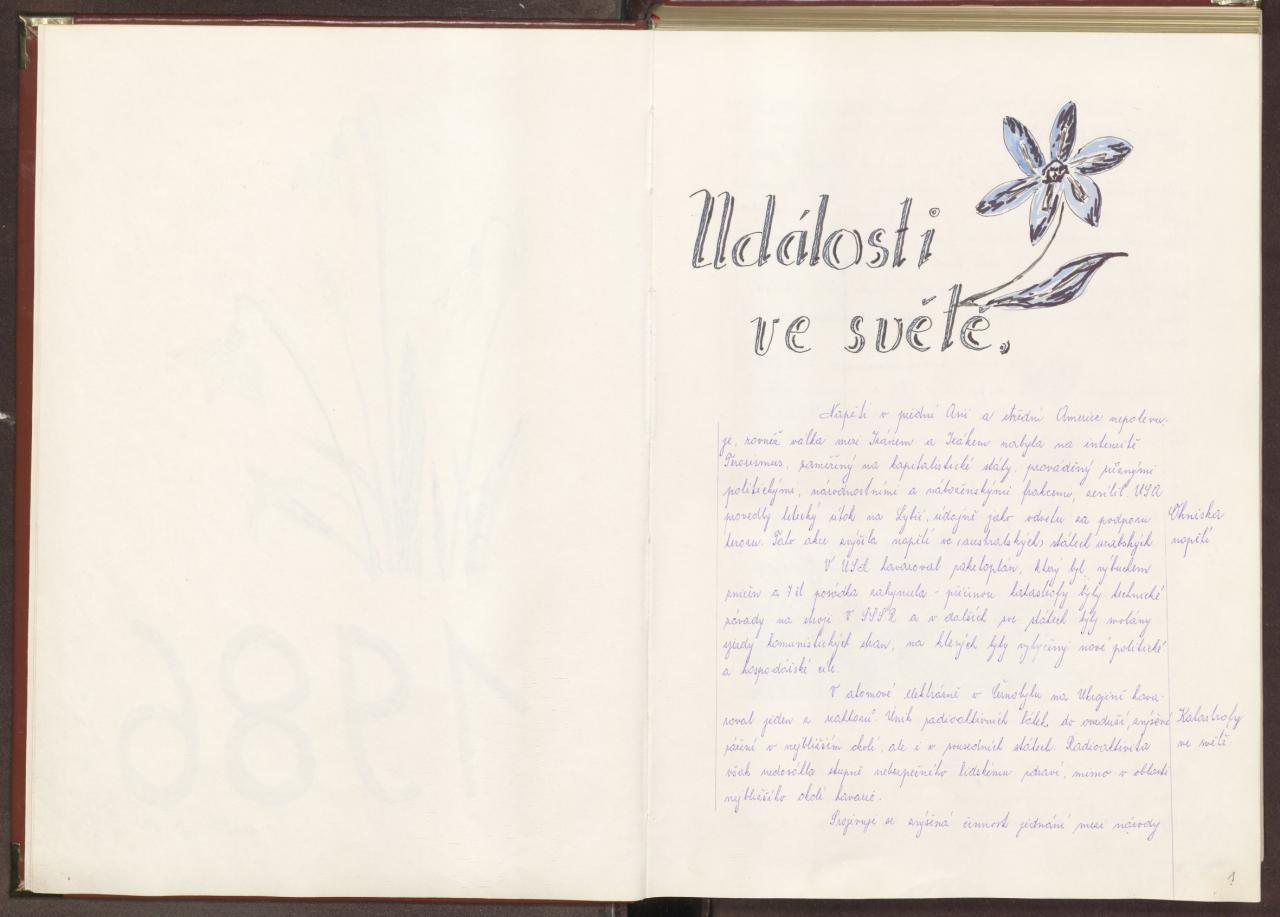 Události
ve světě.
Napětí v přední Asii a střední Americe nepolevu-
je, rovněž válka mezi Iránem a Irákem nabyla na intensitě
Terorismus, zaměřený na kapitalistické státy, prováděný různými
politickými, národnostními a náboženskými frakcemi, zesílil. USA
provedly letecký útok na Lybii, údajně jako odvetu za podporu
teroru. Tato akce zvýšila napětí ve (australských) státech arabských.
Ohniska
napětí
V USA havaroval raketoplán, který byl výbuchem
zničen a 7 čl. posádka zahynula - příčinou katastrofy byly technické
závady na stroji. V SSSR a v dalších soc státech byly svolány
sjezdy komunistických stran, na kterých byly vytýčeny nové politické
a hospodářské cíle.
V atomové elektrárně v Černobylu na Ukrajině hava-
roval jeden z reaktorů. Únik radioaktivních látek do ovzduší, zvýšené
záření v nejbližším okolí, ale i v sousedních státech. Radioaktivita
však nedosáhla stupně nebezpečného lidskému zdraví, mimo v oblasti
nejbližšího okolí havarie.
Katastrofy
ve světě.
Projevuje se zvýšená činnost jednání mezi národy
1
1986